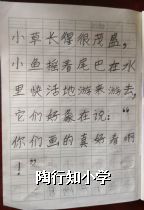 小草长得很茂盛，
小鱼摇着尾巴在水
里快活地游来游去，
它们好象在说：“
你们画的真好看啊
！”
陶行知小学